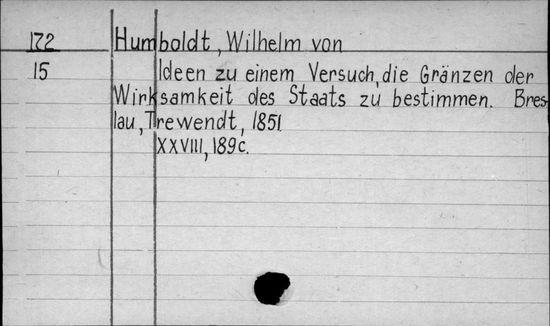 172 Humboldt, Wilhelm von
15 Ideen zu einem Versuch, die Gränzen der
Wirksamkeit des Staats zu bestimmen. Bres-
lau, Trewendt, 1851
XXVIII, 189 c.